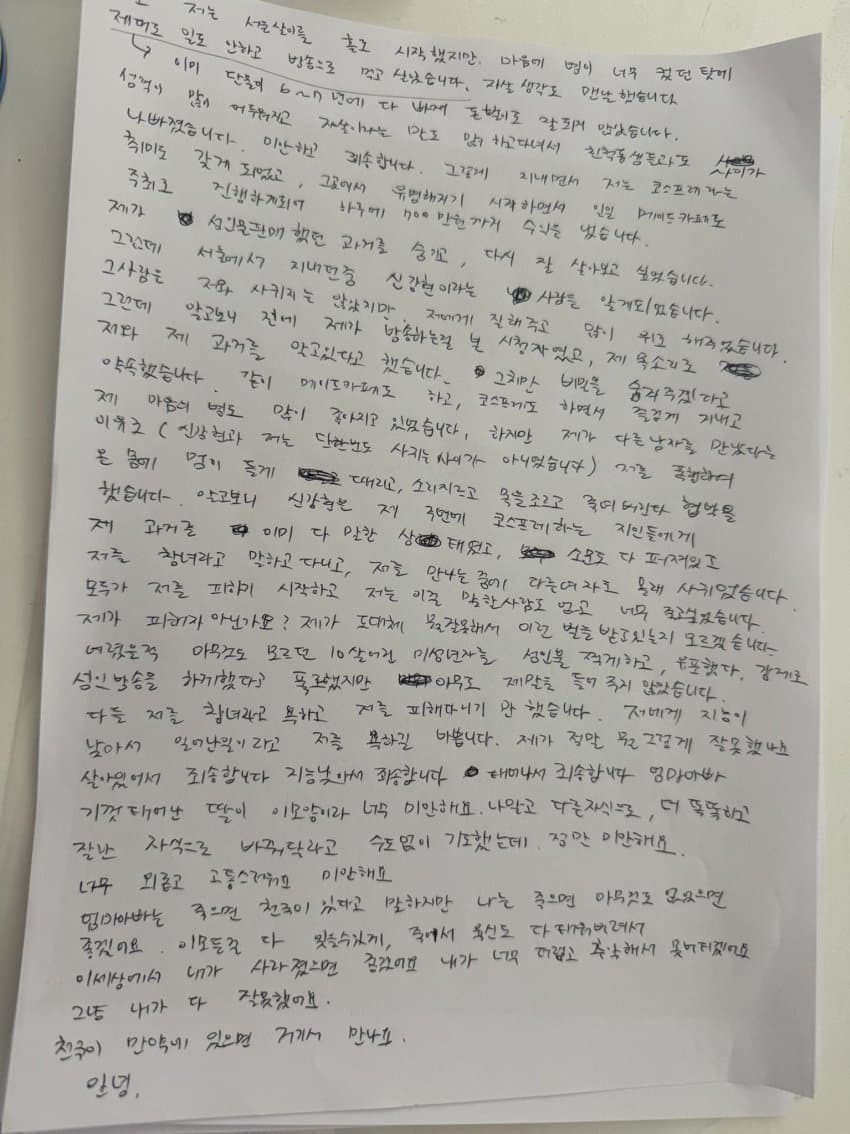 저는 서울살이를 홀로 시작했지만. 마음에 병이 너무 컸던 탓에
제대로 일도 안하고 방송으로 먹고 살았습니다. 자살 생각도 맨날 했습니다
이미 단물이 6~7년에 다 빠져 돈벌이도 잘 되지 않았습니다.
성격이 많이 어두워지고 자살이라는 말도 많이 하고다녀서 친척동생들과도 사이가
나빠졌습니다. 미안하고 죄송합니다. 그렇게 지내면서 저는 코스프레라는
취미도 갖게 되었고, 그곳에서 유명해지기 시작하면서 일일 메이드카페도
주최로 진행하게되어 하루에 700만원까지 수익을 냈습니다.
제가 성인물판매했던 과거를 숨기고, 다시 잘 살아보고 싶었습니다.
그런데 서울에서 지내던중 신강현이라는 사람을 알게되었습니다.
그사람은 저와 사귀지는 않았지만, 저에게 잘해주고 많이 위로 해주었습니다.
그런데 알고보니 전에 제가 방송하는걸 본 시청자였고, 제 목소리로
저와 제 과거를 알고있다고 했습니다. 그치만 비밀을 숨겨주겠다고
약속했습니다. 같이 메이드카페도 하고, 코스프레도 하면서 즐겁게 지내고
제 마음의 병도 많이 좋아지고 있었습니다. 하지만 제가 다른남자를 만났다는
이유로 (신강현과 저는 단한번도 사귀는사이가 아니었습니다) 저를 폭행하여
온 몸에 멍이 들게 때리고, 소리지르고 목을조르고 죽여버린다 협박을
했습니다. 알고보니 신강현은 제 주변에 코스프레하는 지인들에게
제 과거를 이미 다 말한 상태였고, 소문도 다 퍼져있고
저를 창녀라고 말하고 다니고, 저를 만나는 중에 다른여자도 몰래 사귀었습니다.
모두가 저를 피하기 시작하고 저는 이걸 말할사람도 없고 너무 죽고싶었습니다.
제가 피해자 아닌가요? 제가 도대체 뭘잘못해서 이런 벌을 받고있는지 모르겠습니다
어렸을적 아무것도 모르던 10살어린 미성년자를 성인물 찍게하고, 유포했다. 강제로
성인방송을 하게했다고 폭로했지만 아무도 제말을 들어 주지 않았습니다.
다들 저를 창녀라고 욕하고 저를 피해다니기 만 했습니다. 저에게 지능이
낮아서 일어난일이라고 저를 욕하길 바쁩니다. 제가 정말 뭘 그렇게 잘못했나요
살아있어서 죄송합니다 지능낮아서 죄송합니다 태어나서 죄송합니다 엄마아빠
기껏 태어난 딸이 이모양이라 너무 미안해요. 나말고 다른자식으로, 더 똑똑하고
잘난 자식으로 바꿔달라고 수도없이 기도했는데. 정말 미안해요.
너무 외롭고 고통스러워요 미안해요
엄마아빠는 죽으면 천국이 있다고 말하지만 나는 죽으면 아무것도 없었으면
좋겠어요. 이모든걸 다 잊을수있게, 죽어서 육신도 다 태워버려서
이세상에서 내가 사라졌으면 좋겠어요 내가 너무 더럽고 추악해서 못버티겠어요
그냥 내가 다 잘못했어요.
천국이 만약에 있으면 거기서 만나요.
안녕.